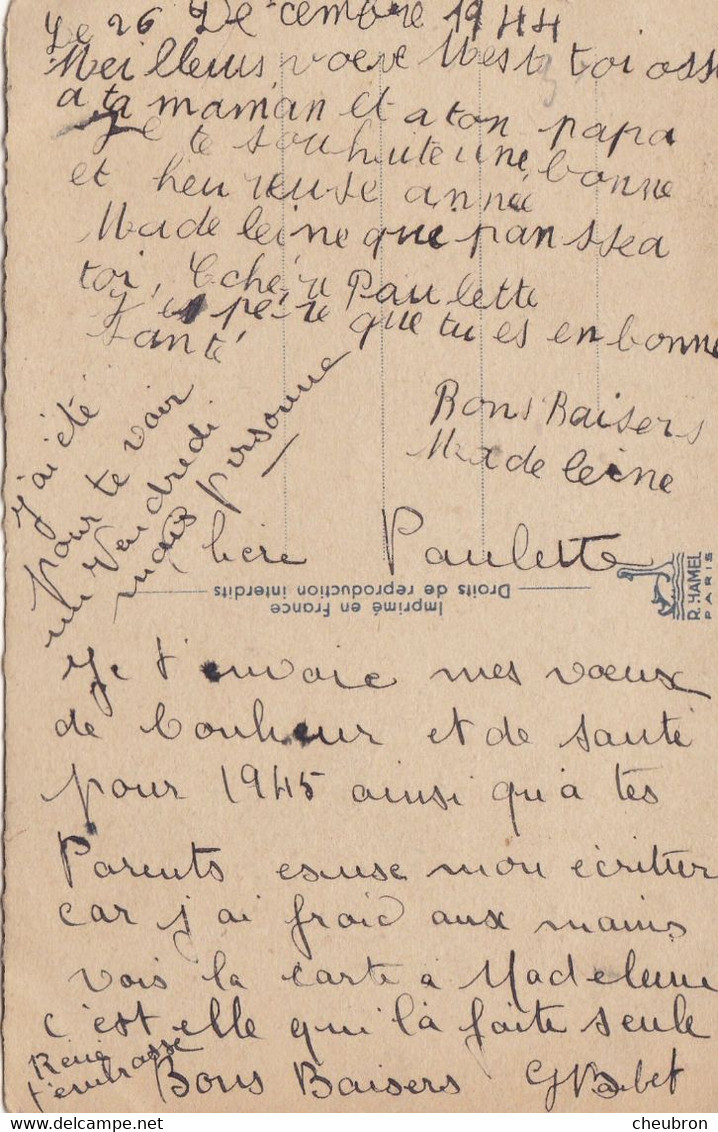 Le 26 Decembre 1944
Meilleurs voeve toi osse
a ta maman et a ton papa
Je te souhuite une bonne
et heureuse année
Madeleine que panssea
toi, Chéru Paulette
J'espére que tu es en bonne
Santé
Bons Baisers
Madeleine
j'ai été
pour te voir
un Vendredi
mais personne
Chere Paulette
Imprimé en France
Droits de reproduction interdits
R. HAMEL
PARIS
Je t'envoie mes vœux
de bonheur et de santé
pour 1945 ainsi qu'à tes
Parents esuse mon écritur
car j'ai froid aux mains
vois la carte a Madeleine
c'est elle qui là faite seule
René
t'embrasse
Bons Baisers
cheubron